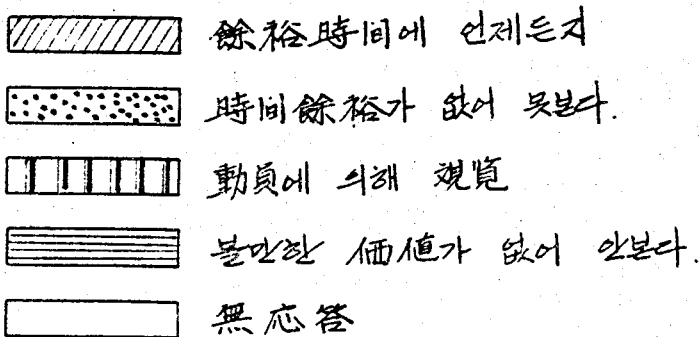 餘裕時間에 언제든지
時間餘裕가 없어 못본다.
動員에 의해 観覧
볼만한 価値가 없어 안본다.
無応答